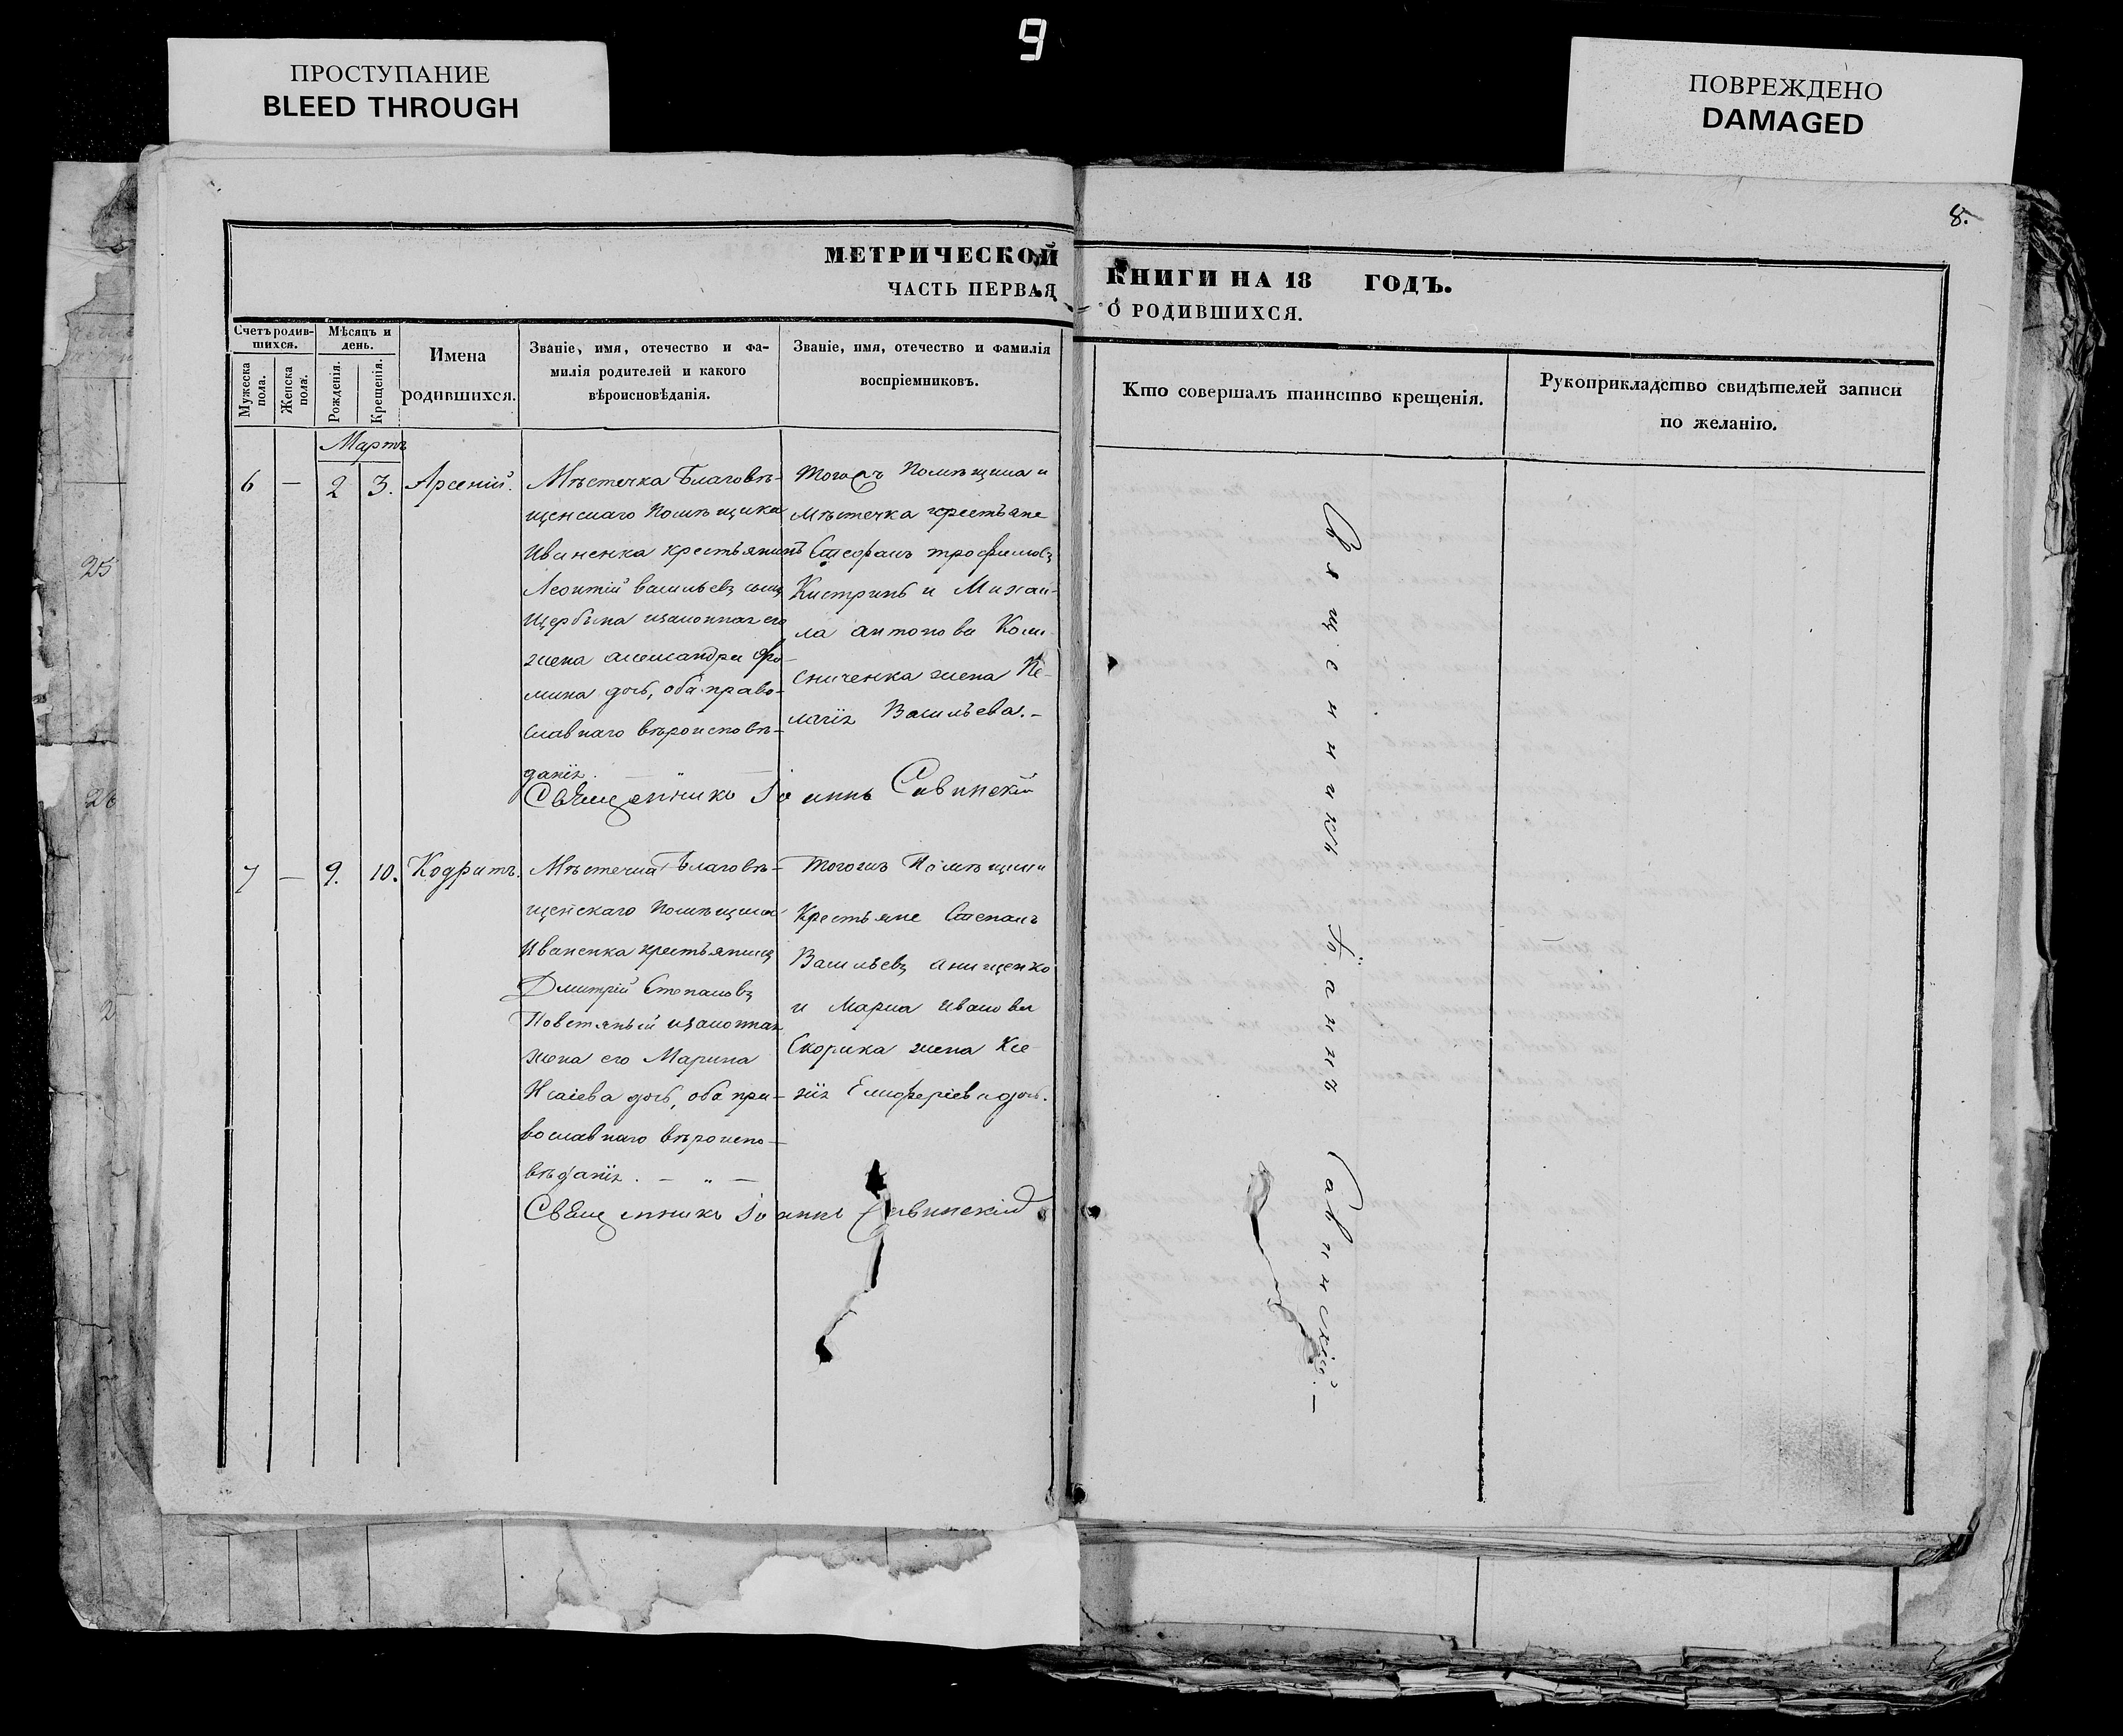 9
ПРОСТУПАНИЕ
BLEED THROUGH
ПОВРЕЖДЕНО
DAMAGED
8.
МЕТРИЧЕСКОЙ КНИГИ НА 18 ГОДЪ.
ЧАСТЬ ПЕРВАЯ О РОДИВШИХСЯ.
Счетъ родив-
шихся.
Мужеска
пола.
Женска
пола.
Мѣсяцъ и
день.
Рожденія.
Крещенія.
Имена
родившихся.
Званіе, имя, отечество и фа-
милія родителей и какого
вѣроисновѣданія.
Званіе, имя, отечество и фамилія
воспріемниковъ.
Кто совершалъ таинство крещенія.
Рукоприкладство свидѣтелей записи
по желанію.
Мартъ
6 — 2 3. Арсеній.
Мѣстечка Благовѣ-
щенскаго Помѣщика
Иваненка крестьянинъ
Леонтій Васильевъ сынъ
Щербина и законная его
жена Александра Фо-
мина дочь, оба право-
славнаго вѣроисповѣ-
данія. — " —
Тогожъ Помѣщика и
мѣстечка крестьяне
Стефанъ Трофимовъ
и Михаи-
ла Антонова
сниченка жена Пе-
лагія Васильева. –
Священникъ Іоаннъ Савинскій
7 — 9. 10. Кодратъ.
Мѣстечка Благовѣ-
щенскаго Помѣщика
Иваненка крестьянинъ
Дмитрій Степановъ
и законная
жена его Марина
Исаіева дочь, оба пра-
вославнаго вѣроиспо-
вѣданія. — " —
Тогожъ Помѣщика
Крестьяне Степанъ
Васильевъ Анищенко
и Марка Иванова
Скорика жена Ксе-
нія дочь.
Священникъ Іоаннъ Савинскій
Священникъ Іоаннъ Савинскій. —
25
26
2